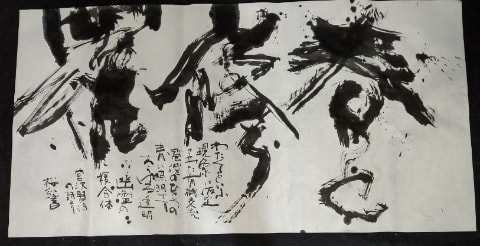 春と
修
羅
わたくしといふ
現象は仮定
された有機交流
電燈のひとつの
青い照明です
あらゆる透明
な幽霊の
複合体
宮沢賢治
の詩より
書